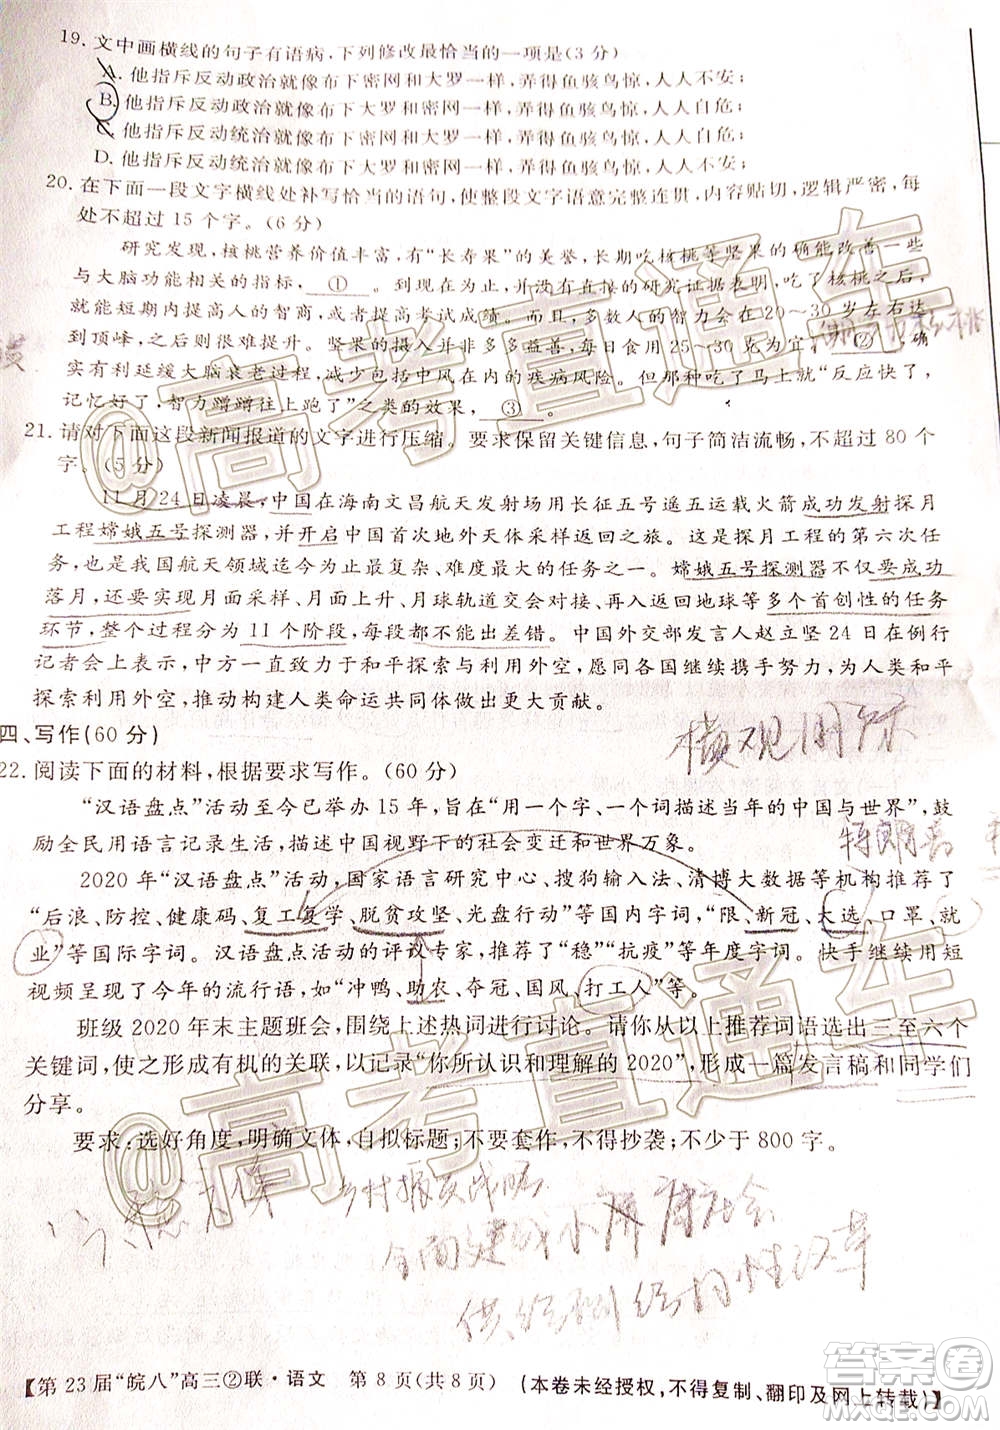 19. 文中画横线的句子有语病,下列修改最恰当的一项是(3分)
A. 他指斥反动政治就像布下密网和大罗一样,弄得鱼骇鸟惊,人人不安;
B. 他指斥反动政治就像布下大罗和密网一样,弄得鱼骇鸟惊,人人自危;
C. 他指斥反动统治就像布下密网和大罗一样,弄得鱼骇鸟惊,人人自危;
D. 他指斥反动统治就像布下大罗和密网一样,弄得鱼骇鸟惊,人人不安;
20. 在下面一段文字横线处补写恰当的语句,使整段文字语意完整连贯,内容贴切,逻辑严密,每
处不超过 15 个字。(6分)
研究发现,核桃营养价值丰富,有“长寿果”的美誉,长期食用核桃等坚果的确能改善一些
与大脑功能相关的指标, ① 。到现在没有直接的研究证据表明,吃了核桃之后,
能在短期内提高人的智商,或者提高考试成绩。而且,人的智力会在 20~30 岁左右达
到顶峰,很难大幅提升。坚果的摄入并非多多益善,每日食用 25~30 克为宜, ② ,确
实有利延缓大脑衰老过程,减少包括中风在内的疾病风险。但核桃等吃了马上就“反应快了,
记忆好了,智力蹭蹭往上跑了”之类的效果, ③ 。
21. 请对下面这段新闻报道的文字进行压缩。要求保留关键信息,句子简洁流畅,不超过 80 个
字。(5分)
11 月 24 日凌晨,中国在海南文昌航天发射场用长征五号遥五运载火箭成功发射探月
工程嫦娥五号探测器,并开启中国首次地外天体采样返回之旅。这是探月工程的第六次任
务,也是我国航天领域迄今为止最复杂、难度最大的任务。嫦娥五号探测器不仅要成功
落月,还要实现月面采样、月面上升、月球轨道交会对接、再入返回地球等多个首创性的任务
环节,整个过程分为 11 个阶段,每段都不能出差错。中国外交部发言人赵立坚 24 日在例行
记者会上表示,中方一直致力于和平探索与利用外空,愿同各国继续携手努力,为人类和平
探索利用外空,推动构建人类命运共同体作出更大贡献。
四、写作(60 分)
横观国际
22. 阅读下面的材料,根据要求写作。(60 分)
“汉语盘点”活动至今已举办 15 年,旨在“用一个字、一个词描述当年的中国与世界”,鼓
励全民用语言记录生活,描述中国视野下的社会变迁和世界万象。
特朗普
2020 年“汉语盘点”活动,国家语言研究中心、搜狗输入法、清博大数据等机构推荐了
“后浪、防控、健康码、复工复学、脱贫攻坚、光盘行动”等国内字词,“限、新冠、大选、口罩、就
业”等国际字词。汉语盘点活动的评议专家,推荐了“稳”“抗疫”等年度字词。快手继续用短
视频呈现了今年的流行语,如“冲鸭、助农、夺冠、国风、打工人”等。
班级 2020 年末主题班会,围绕上述热词进行讨论。请你从以上推荐词语选出三至六个
关键词,使之形成有机的关联,以记录“你所认识和理解的 2020”,形成一篇发言稿和同学们
分享。
要求:选好角度,明确文体,自拟标题;不要套作,不得抄袭;不少于 800 字。
乡村振兴战略
全面建成小康社会
供给侧结构性改革
【第 23 届“皖八”高三②联·语文 第 8 页(共 8 页) (本卷未经授权,不得复制、翻印及网上转载)】
@高考直通车
@高考直通车